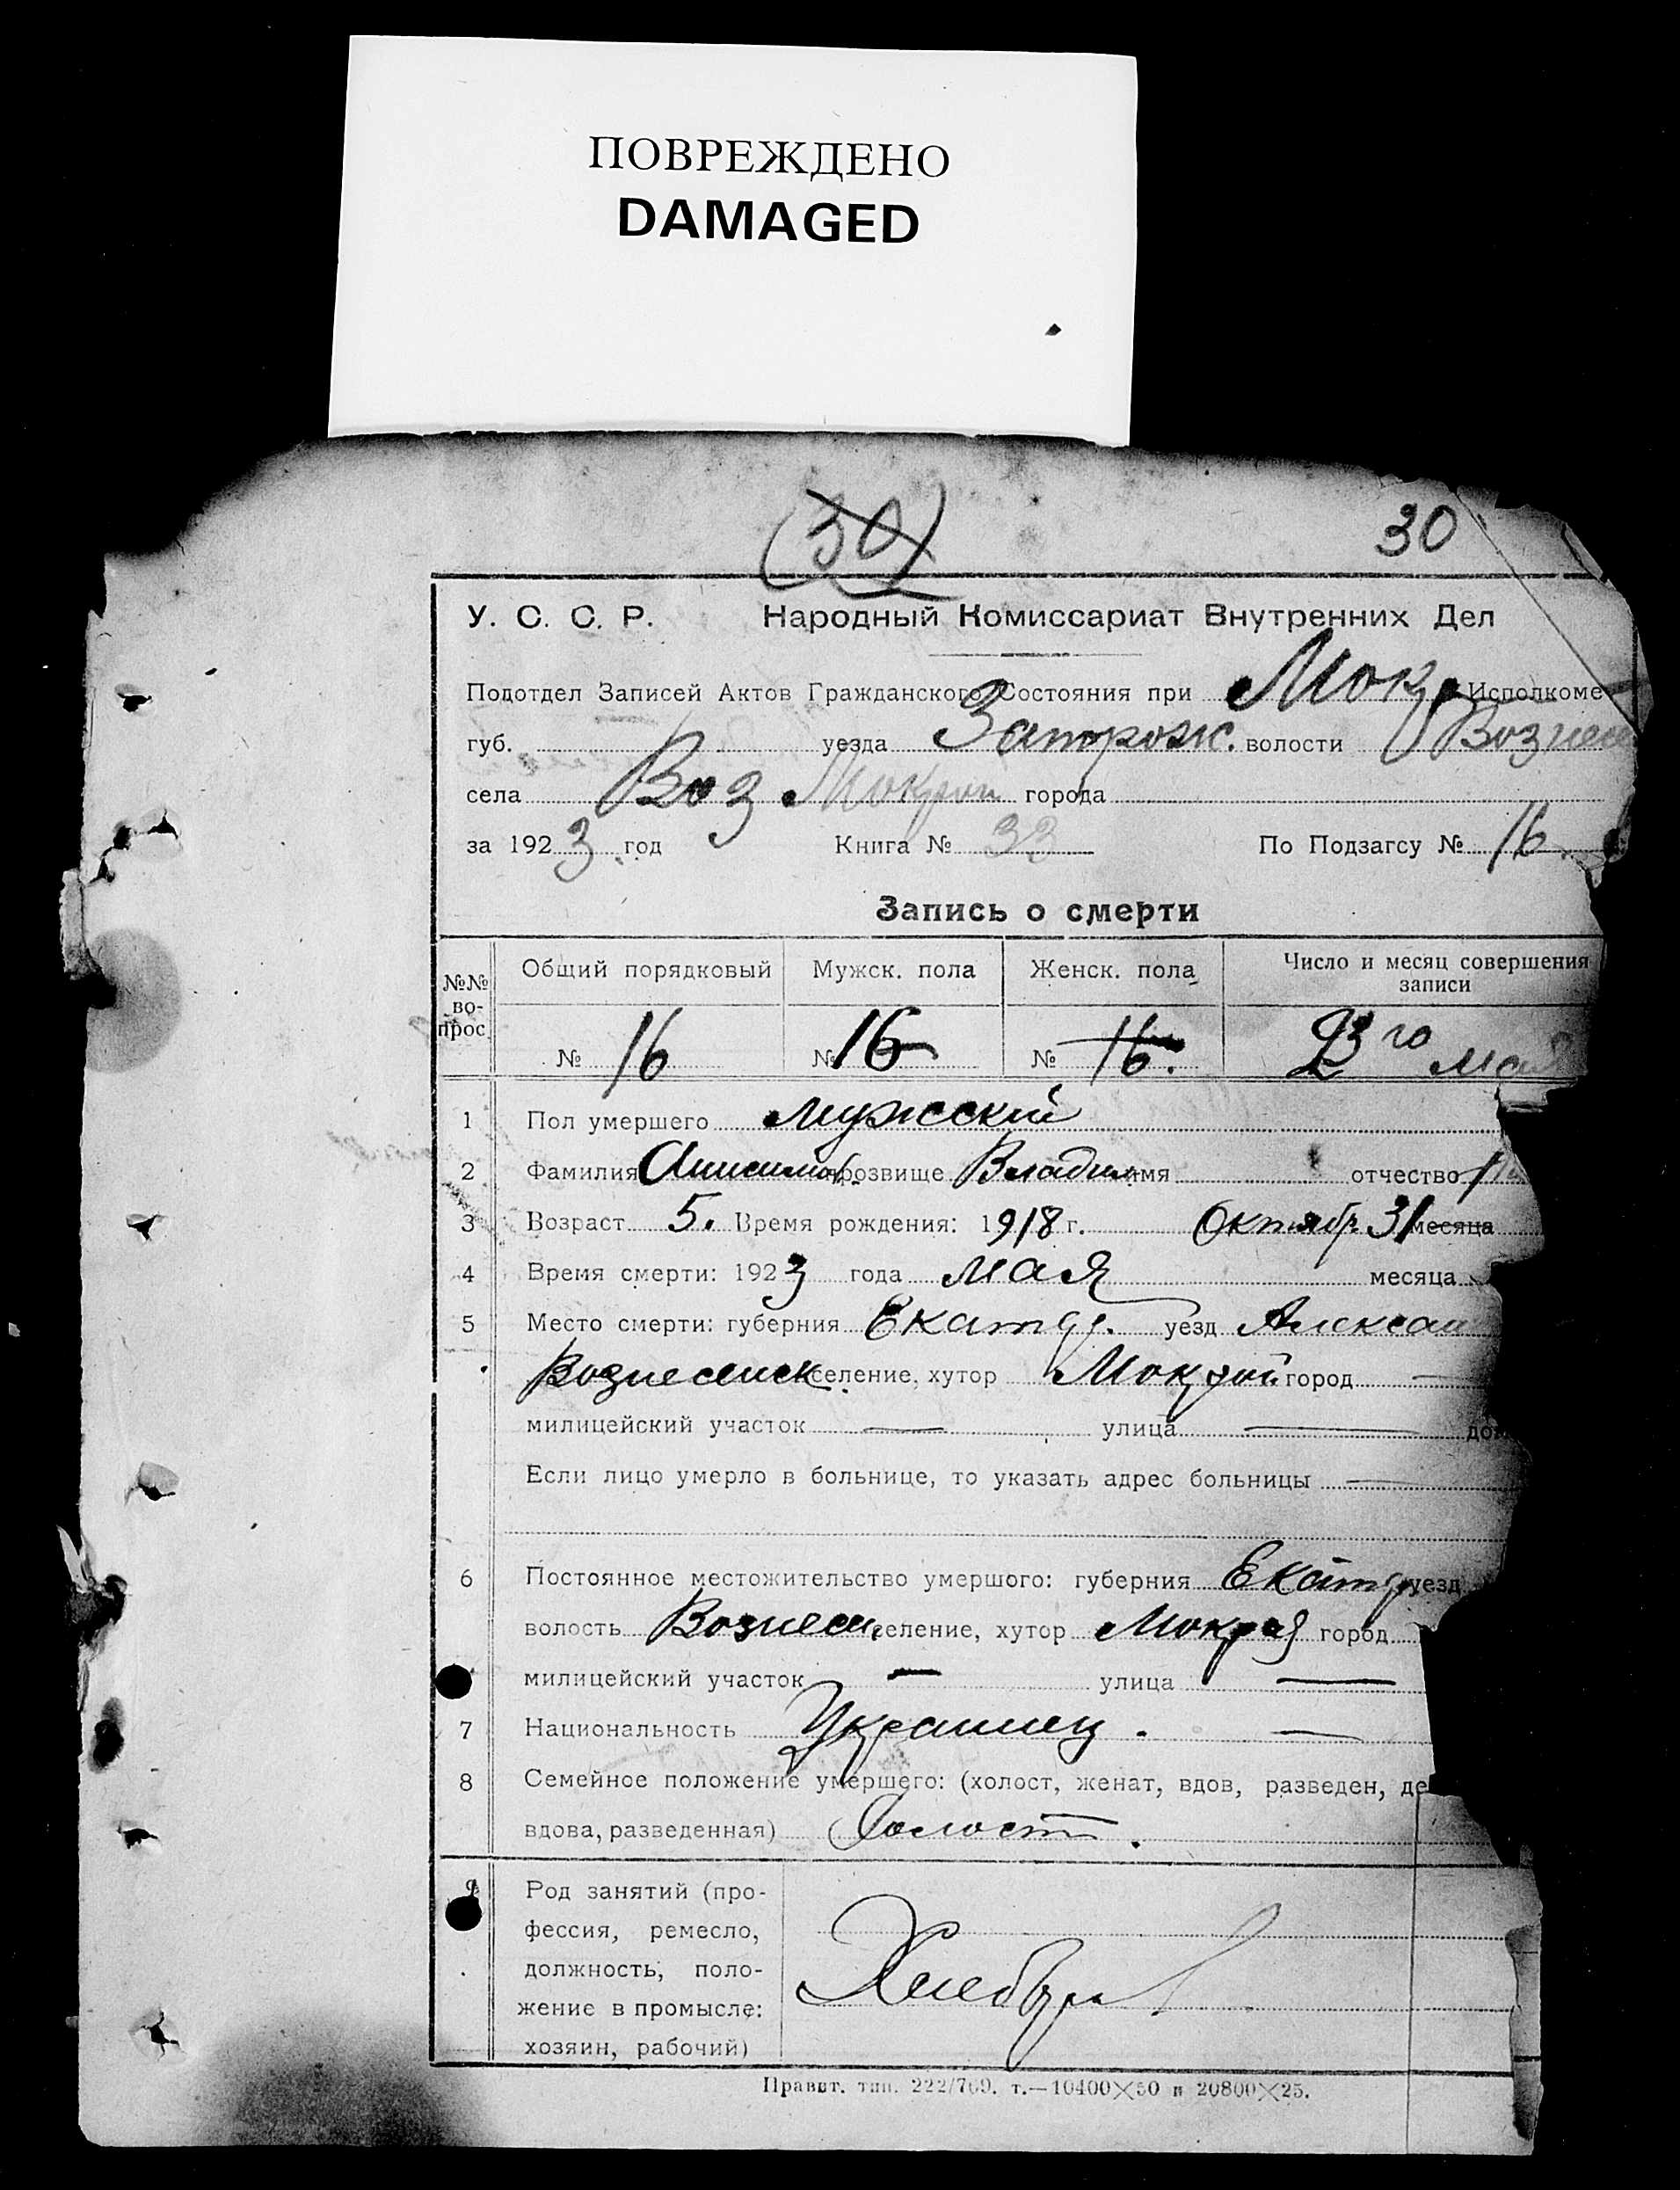 ПОВРЕЖДЕНО
DAMAGED
(30) 30
У. С. С. Р. Народный Комиссариат Внутренних Дел
Подотдел Записей Актов Гражданского Состояния при Мокр Исполкоме
губ. уезда Запорож. волости Вознесе
села Воз Мокрой города
за 1923 год Книга № 33 По Подзагсу № 16.
Запись о смерти
№№ во- прос. Общий порядковый Мужск. пола Женск. пола Число и месяц совершения записи
№ 16 № 16 № 16. 23го мая
1 Пол умершего мужский
2 Фамилия Анисимов. прозвище Владим имя отчество
3 Возраст 5. Время рождения: 1918 г. Октябр. 31 месяца
4 Время смерти: 1923 года мая месяца
5 Место смерти: губерния Екатер. уезд Алексан
Вознесенск. селение, хутор Мокрой город —
милицейский участок — улица — до
Если лицо умерло в больнице, то указать адрес больницы —
6 Постоянное местожительство умершого: губерния Екатер уезд
волость Вознесен. селение, хутор Мокрая город
милицейский участок — улица —
7 Национальность Украинец. —
8 Семейное положение умершего: (холост, женат, вдов, разведен, де
вдова, разведенная) Холост.
9 Род занятий (про-
фессия, ремесло,
должность, поло-
жение в промысле:
хозяин, рабочий)
Правит. тип. 222/769. т.—10400×50 и 20800×25.